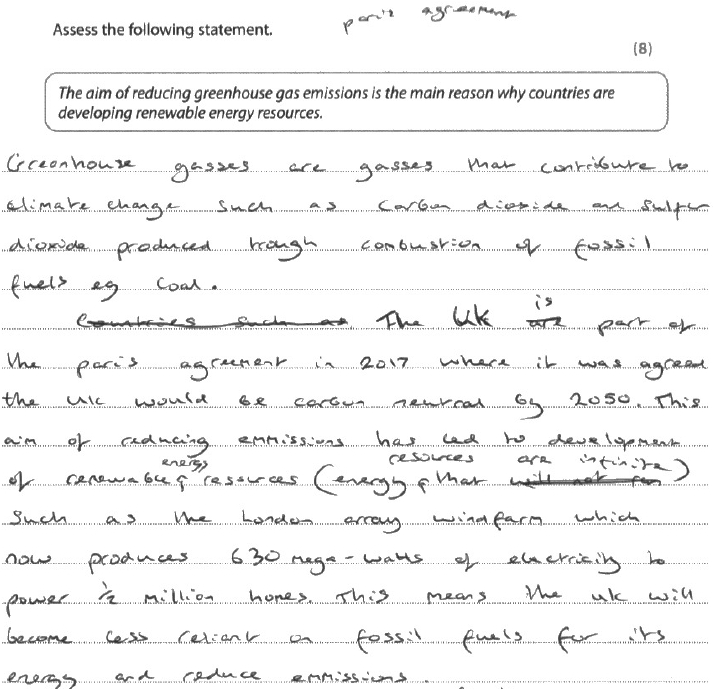 paris agreement
Assess the following statement.
(8)
The aim of reducing greenhouse gas emissions is the main reason why countries are
developing renewable energy resources.
Greenhouse gasses are gasses that contribute to
climate change such as carbon dioxide and sulfur
dioxide produced trough combustion of fossil
fuels eg coal.
Countries such as The UK are is part of
the paris agreement in 2017 where it was agreed
the UK would be carbon neutral by 2050. This
aim of reducing emmissions has led to development
of renewable energy resources (energy resources that are infinite)
such as the London array windfarm which
now produces 630 mega-watts of electricity to
power ½ million homes. This means the uk will
become less reliant on fossil fuels for its
energy and reduce emmissions.